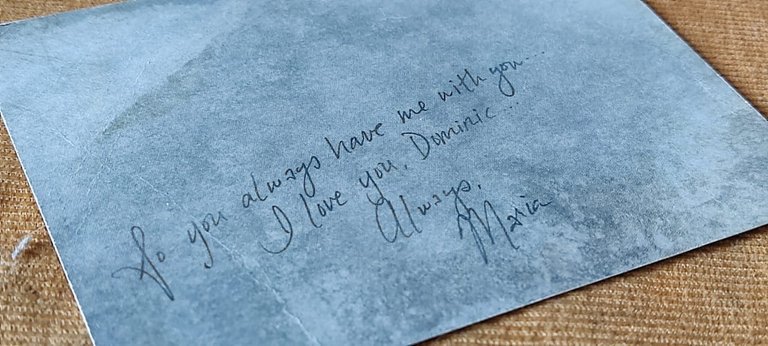 So you always have me with you...
I love you, Dominic...
Always,
Maria